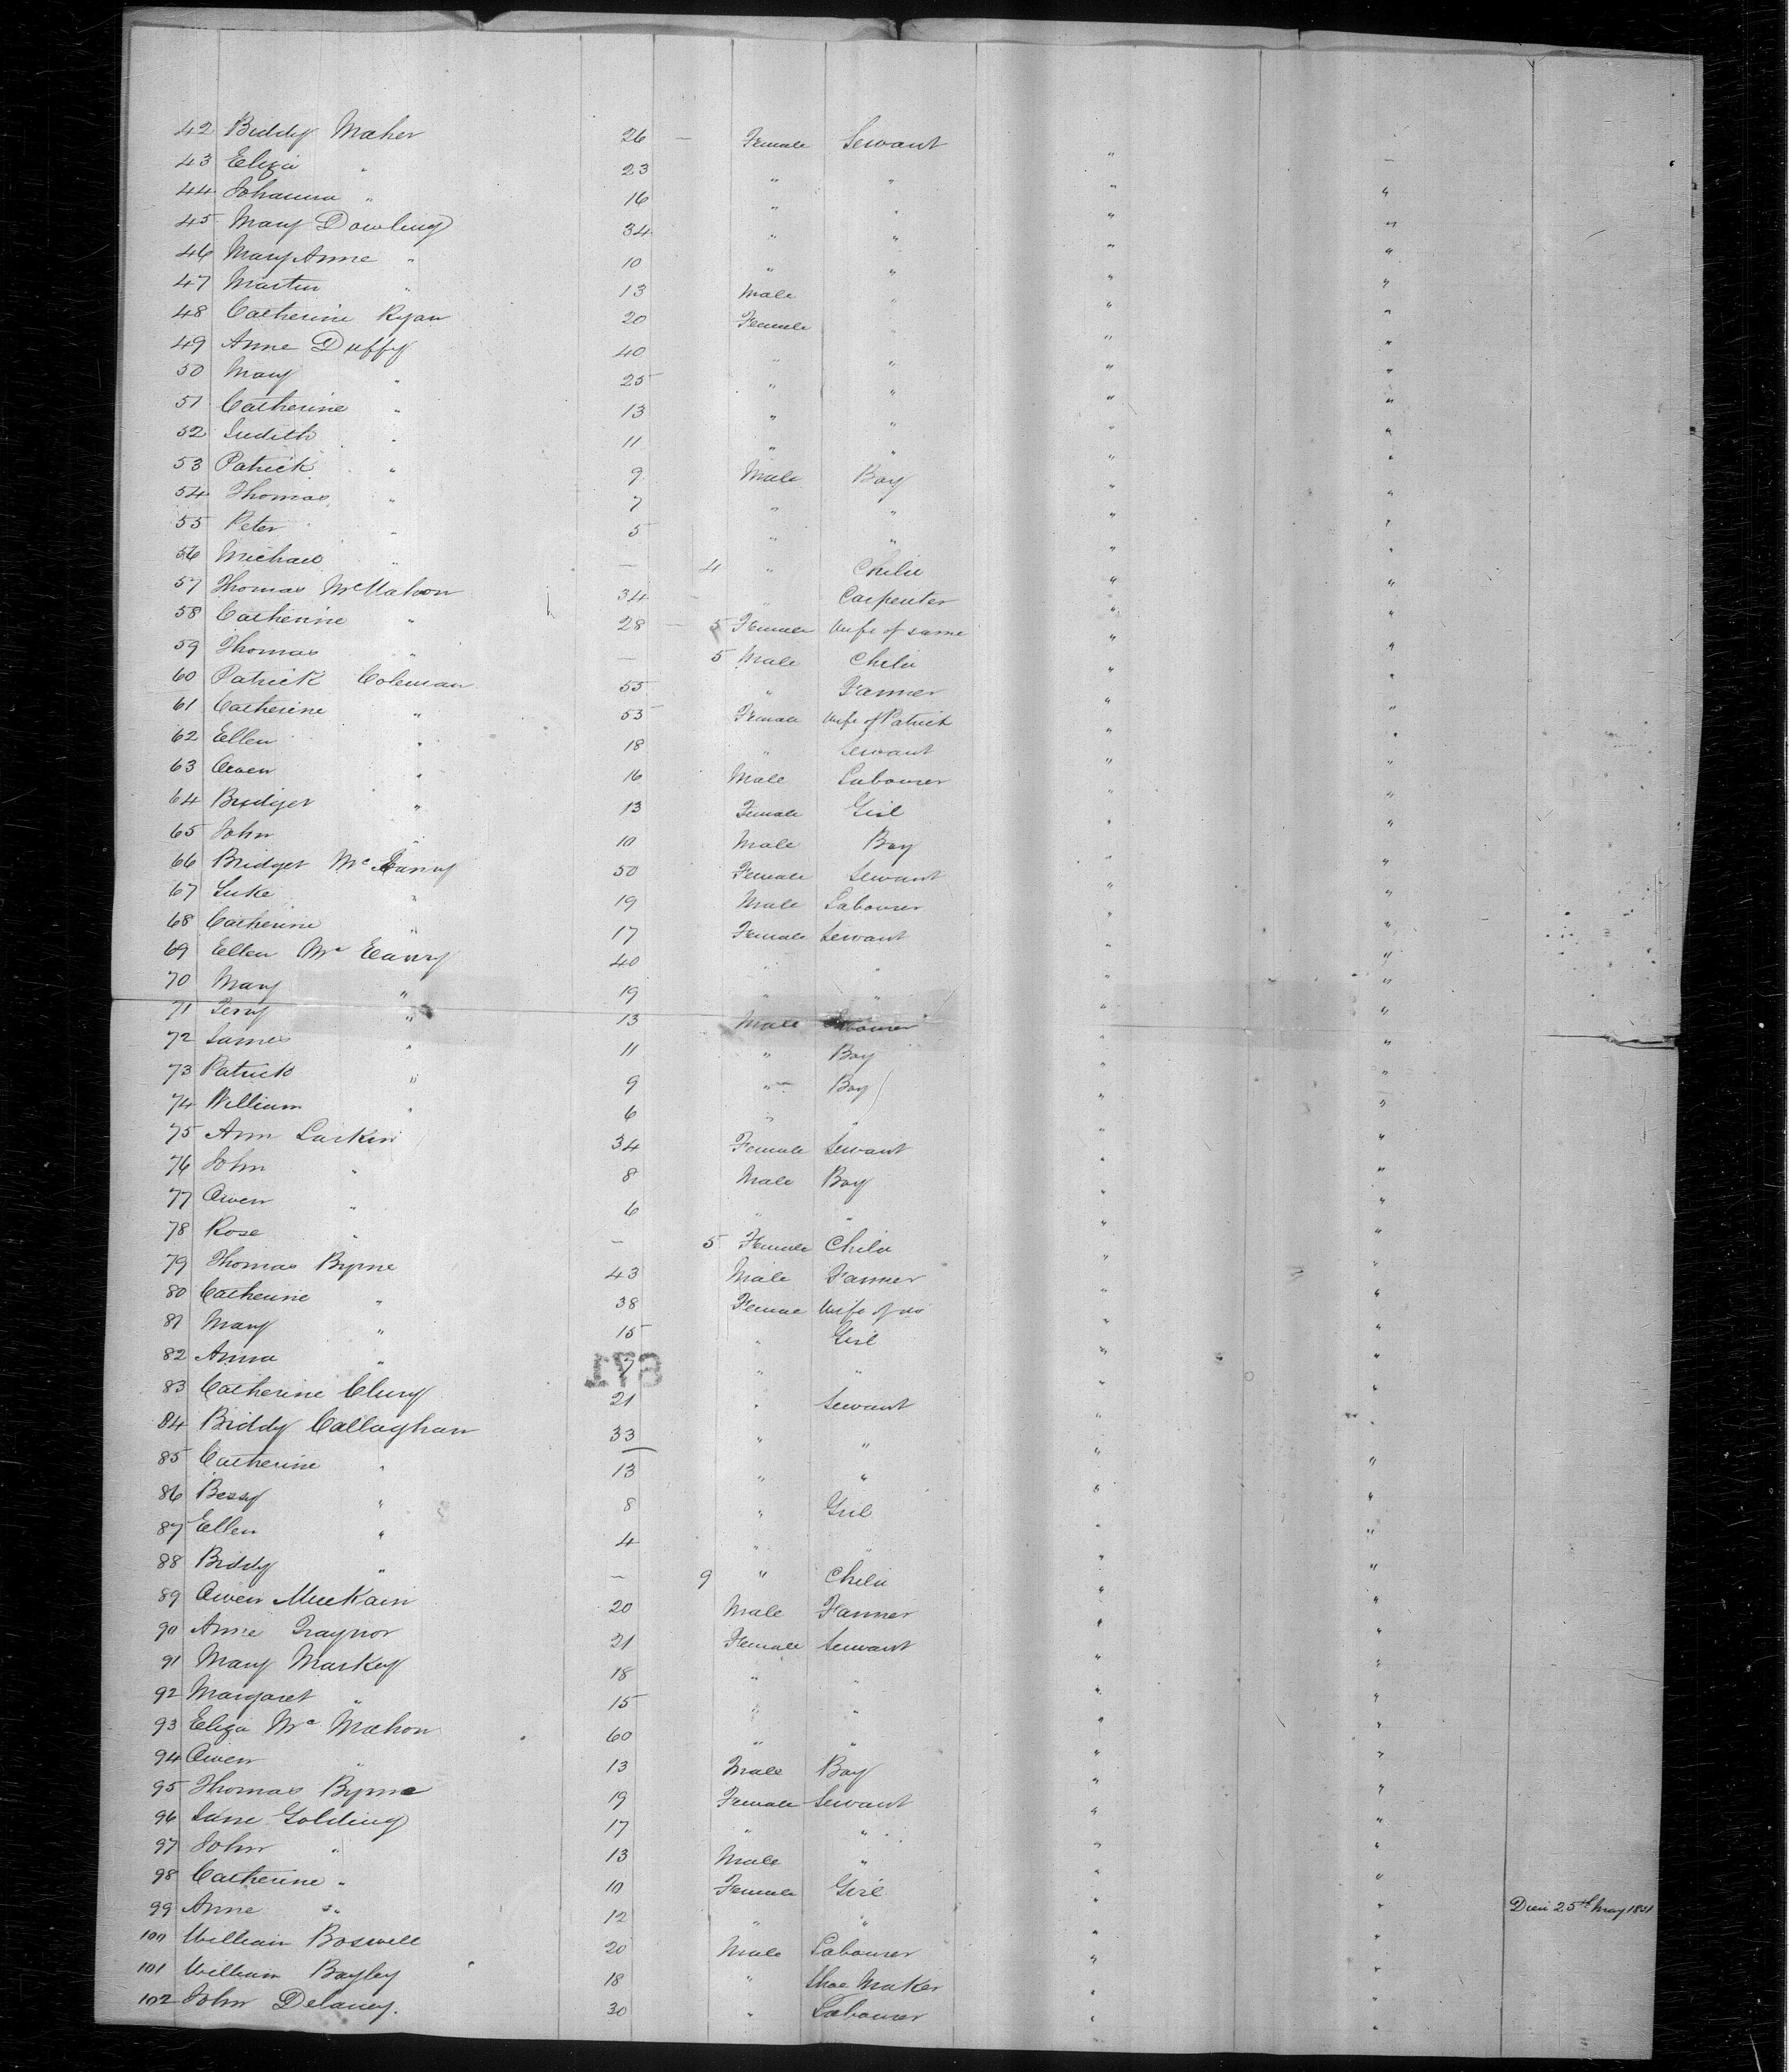 42 Biddy Maher 26 — Female Servant " –
43 Eliza " 23 " " " "
44 Johanna " 16 " " " "
45 Mary Dowling 34 " " " "
46 Mary Anne " 10 " " " "
47 Martin " 13 Male " " "
48 Catherine Ryan 20 Female " " "
49 Anne Duffy 40 " " " "
50 Mary " 25 " " " "
51 Catherine " 13 " " " "
52 Judith " 11 " " " "
53 Patrick " 9 Male Boy " "
54 Thomas " 7 " " " "
55 Peter " 5 " " " "
56 Michael " — 4 " Child " "
57 Thomas McMahon 34 – " Carpenter " "
58 Catherine " 28 — 5 Female Wife of same " "
59 Thomas " — 5 Male Child " "
60 Patrick Coleman 55 " Farmer " "
61 Catherine " 53 Female Wife of Patrick " "
62 Ellen " 18 " Servant " "
63 Owen " 16 Male Labourer " "
64 Bridget " 13 Female Girl " "
65 John " 10 Male Boy " "
66 Bridget Mc 50 Female Servant " "
67 Luke " 19 Male Labourer " "
68 Catherine " 17 Female Servant " "
69 Ellen Mc Eanry 40 " " " "
70 Mary " 19 " " " "
71 Terry " 13 Male Labourer " "
72 James " 11 " Boy " "
73 Patrick " 9 " Boy " "
74 William " 6 " " " "
75 Ann Larkin 34 Female Servant " "
76 John " 8 Male Boy " "
77 Owen " 6 " " " "
78 Rose " — 5 Female Child " "
79 Thomas Byrne 43 Male Farmer " "
80 Catherine " 38 Female Wife of do " "
81 Mary " 15 " Girl " "
82 Anna " 7 " " " "
83 Catherine Clury 21 " Servant " "
84 Biddy Callaghan 33 " " " "
85 Catherine " 13 " " " "
86 Bessy " 8 " Girl " "
87 Ellen " 4 " " " "
88 Biddy " — 9 " Child " "
89 Owen MucKain 20 Male Farmer " "
90 Anne Traynor 21 Female Servant " "
91 Mary Markey 18 " " " "
92 Margaret " 15 " " " "
93 Eliza Mc Mahon 60 " " " "
94 Owen " 13 Male Boy " "
95 Thomas Byrne 19 Female Servant " "
96 Jane Golding 17 " " " "
97 John " 13 Male " " "
98 Catherine " 10 Female Girl " "
99 Anne " 12 " " " " Died 25th May 1851
100 William Boswell 20 Male Labourer " "
101 William Bayley 18 " Shoe Maker " "
102 John Delaney. 30 " Labourer " "